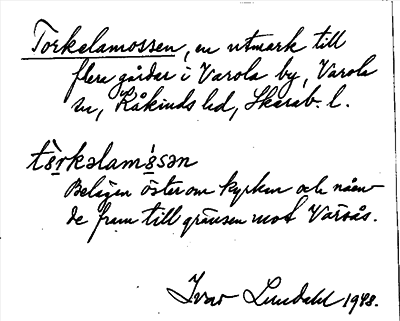 Torkelamossen, en utmark till
flera gårdar i Varola by, Varola
sn, Kåkinds hd, Skarab. l.
tòrkəlamósən
Belägen öster om kyrkan och nåen-
de fram till gränsen mot Varvås.
Ivar Lundahl 1948.